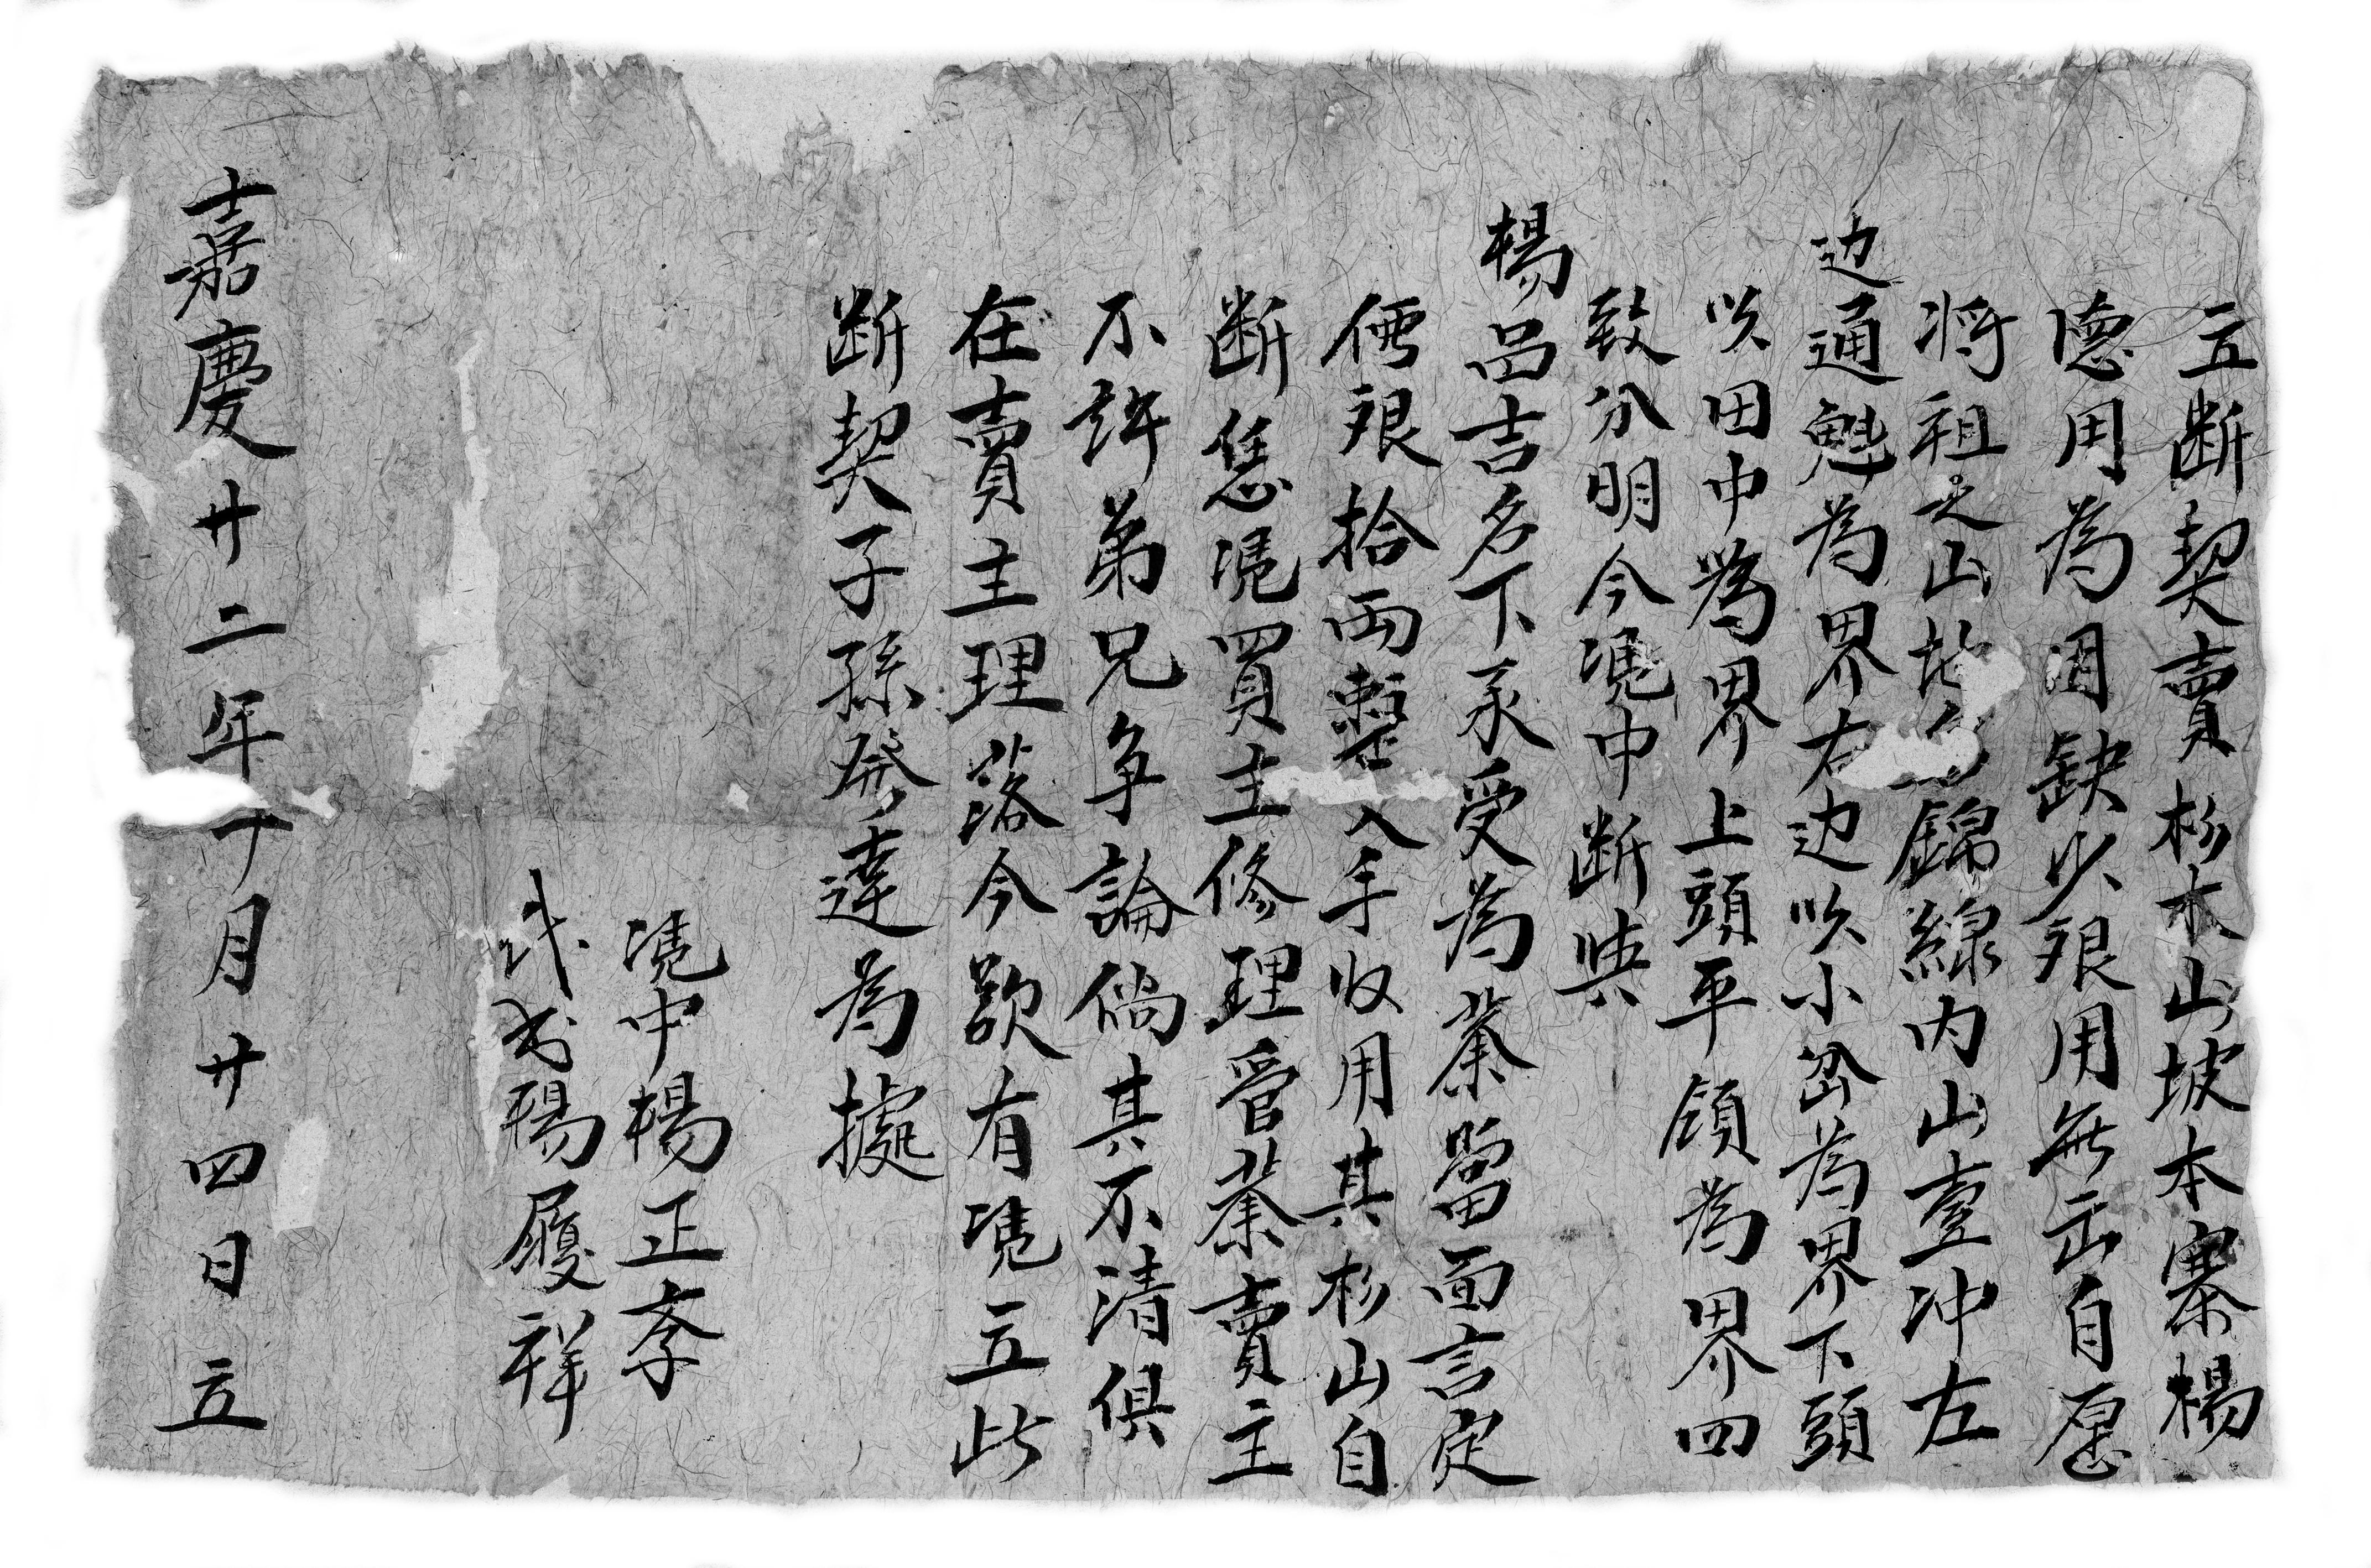 立断契賣杉木山坡本寨楊
德用為因缺少艮用無出自愿
将祖之山地名錦線内山壹冲左
边通魁為界右边以小岔為界下頭
以田中為界上頭平領為界四
致分明今凴中断與
楊昌吉名下承受為業當面言定
價艮拾両整入手收用其杉山自
断恁凴買主修理管業賣主
不許弟兄争論倘其不清俱
在賣主理落今欲有凴立此
断契子孫發達為據
凴中楊正孝
代書楊履祥
嘉慶廿二年十月廿四日立